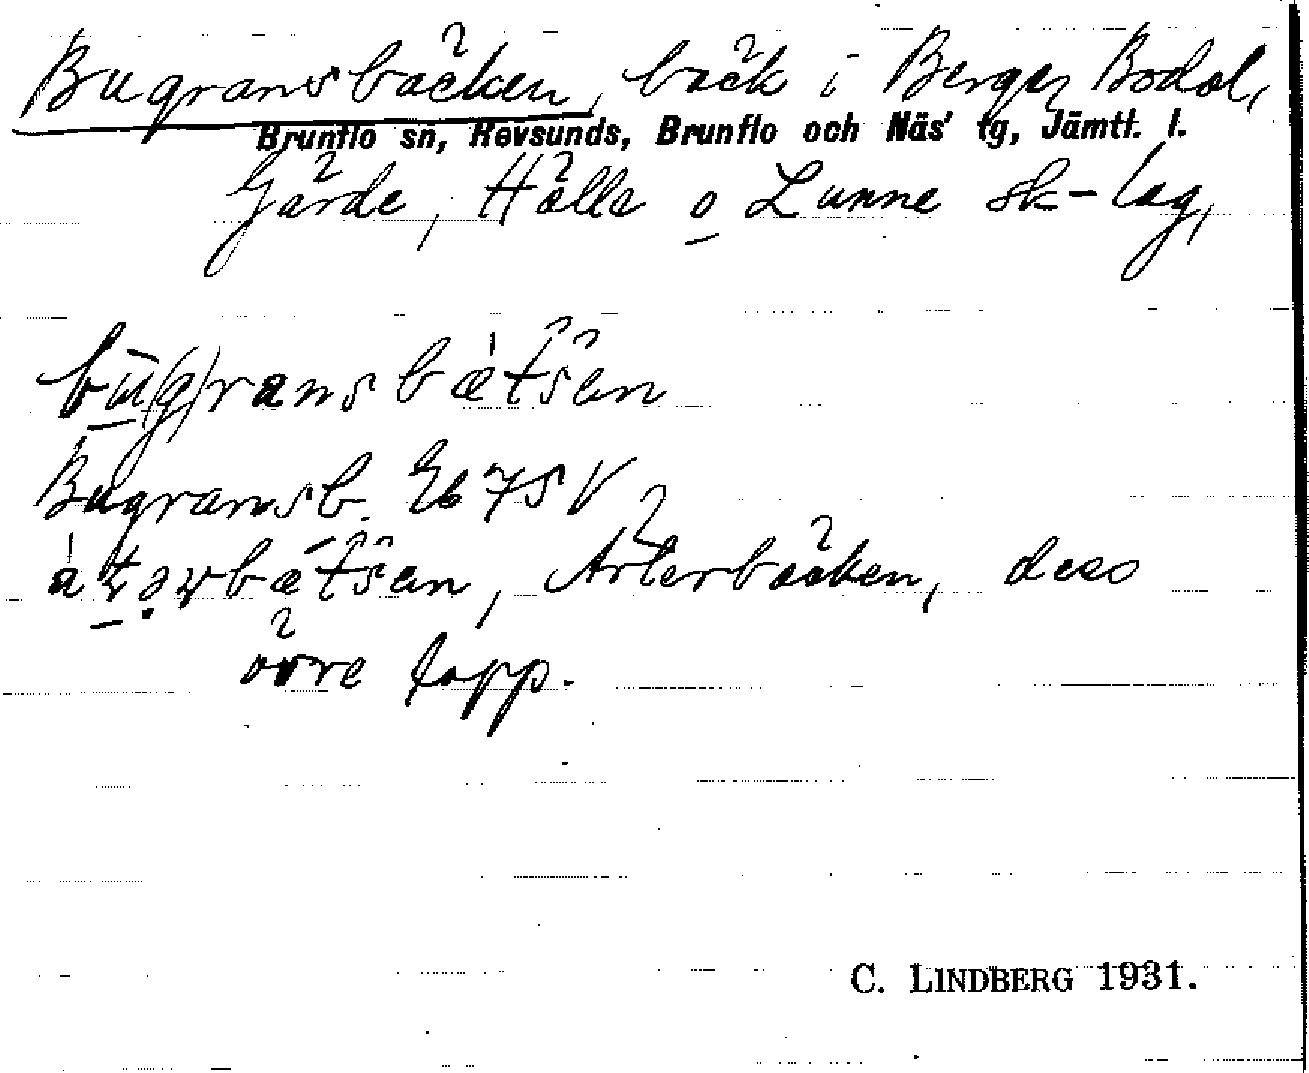 Bugransbäcken, bäck i Berge, Bodal,
Brunflo sn, Revsunds, Brunflo och Näs' tg, Jämtl. l.
Gärde, Hälle o Lunne sk-lag,
bū(g)ransbæ̀tšen
Bugransb. Eb 75 V
àtərbætšen, Årterbäcken, dess
övre lopp.
C. LINDBERG 1931.